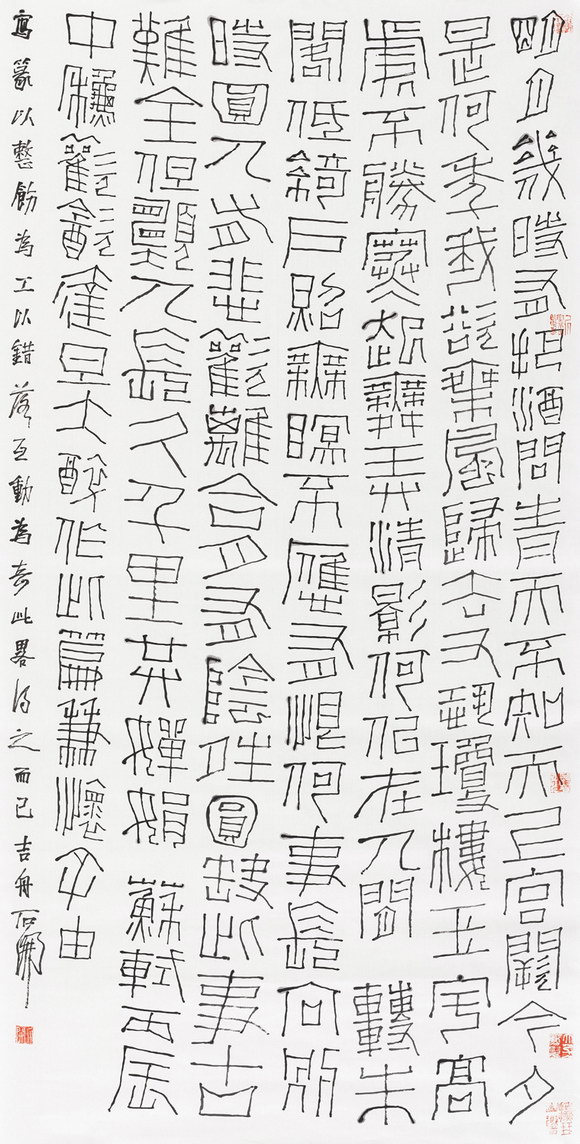 明月幾時有把酒問青天不知天上宮闕今夕
是何年我欲乘風歸去又恐瓊樓玉宇高
處不勝寒起舞弄清影何似在人間 轉朱
閣低綺戶照無眠不應有恨何事長向別
時圓人有悲歡離合月有陰晴圓缺此事古
難全但願人長久千里共嬋娟 蘇軾丙辰
中秋歡飲達旦大醉作此篇兼懷子由
寫篆以整飭為工以錯落互動為奇此畧得之而已 吉舟